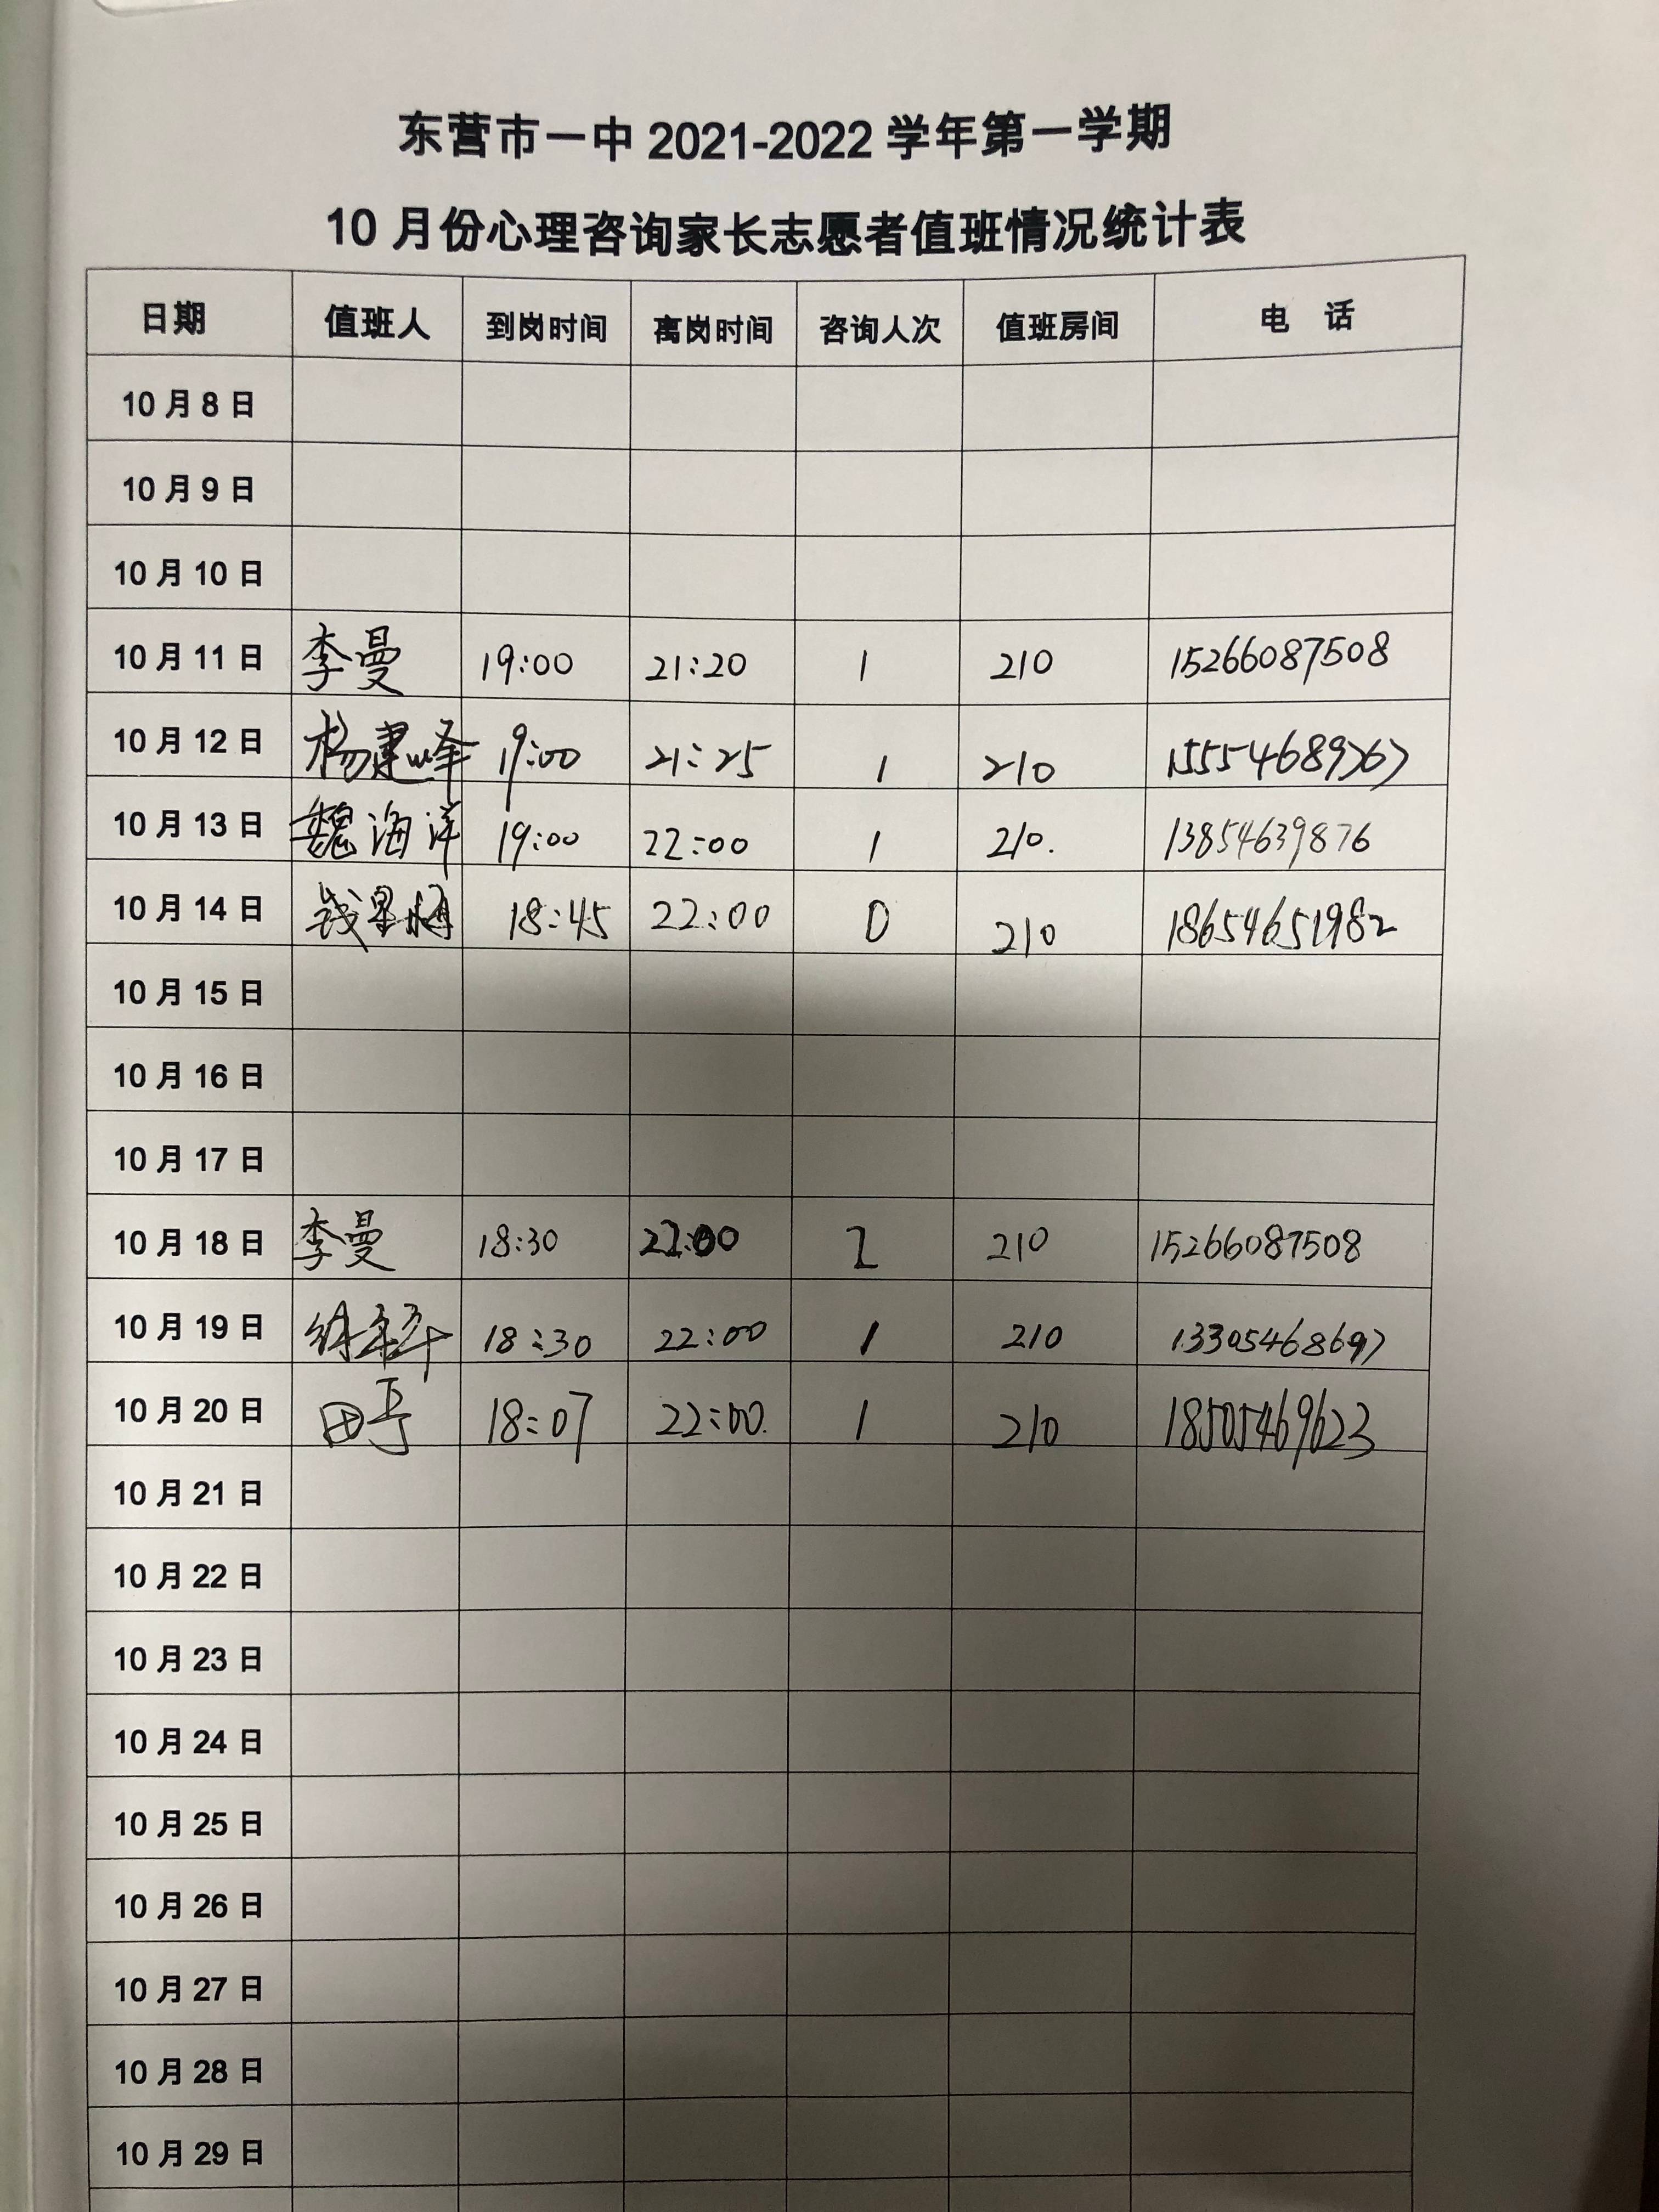 东营市一中 2021-2022 学年第一学期
10 月份心理咨询家长志愿者值班情况统计表
日期 值班人 到岗时间 离岗时间 咨询人次 值班房间 电 话
10 月 8 日
10 月 9 日
10 月 10 日
10 月 11 日 李曼 19:00 21:20 1 210 15266087508
10 月 12 日 杨建峰 19:00 21:25 1 210 15554689767
10 月 13 日 魏海洋 19:00 22:00 1 210. 13854639876
10 月 14 日 钱 18:45 22:00 0 210 18654651982
10 月 15 日
10 月 16 日
10 月 17 日
10 月 18 日 李曼 18:30 22:00 2 210 15266087508
10 月 19 日 18:30 22:00 1 210 13305468697
10 月 20 日 田 18:07 22:00. 1 210 18505469623
10 月 21 日
10 月 22 日
10 月 23 日
10 月 24 日
10 月 25 日
10 月 26 日
10 月 27 日
10 月 28 日
10 月 29 日